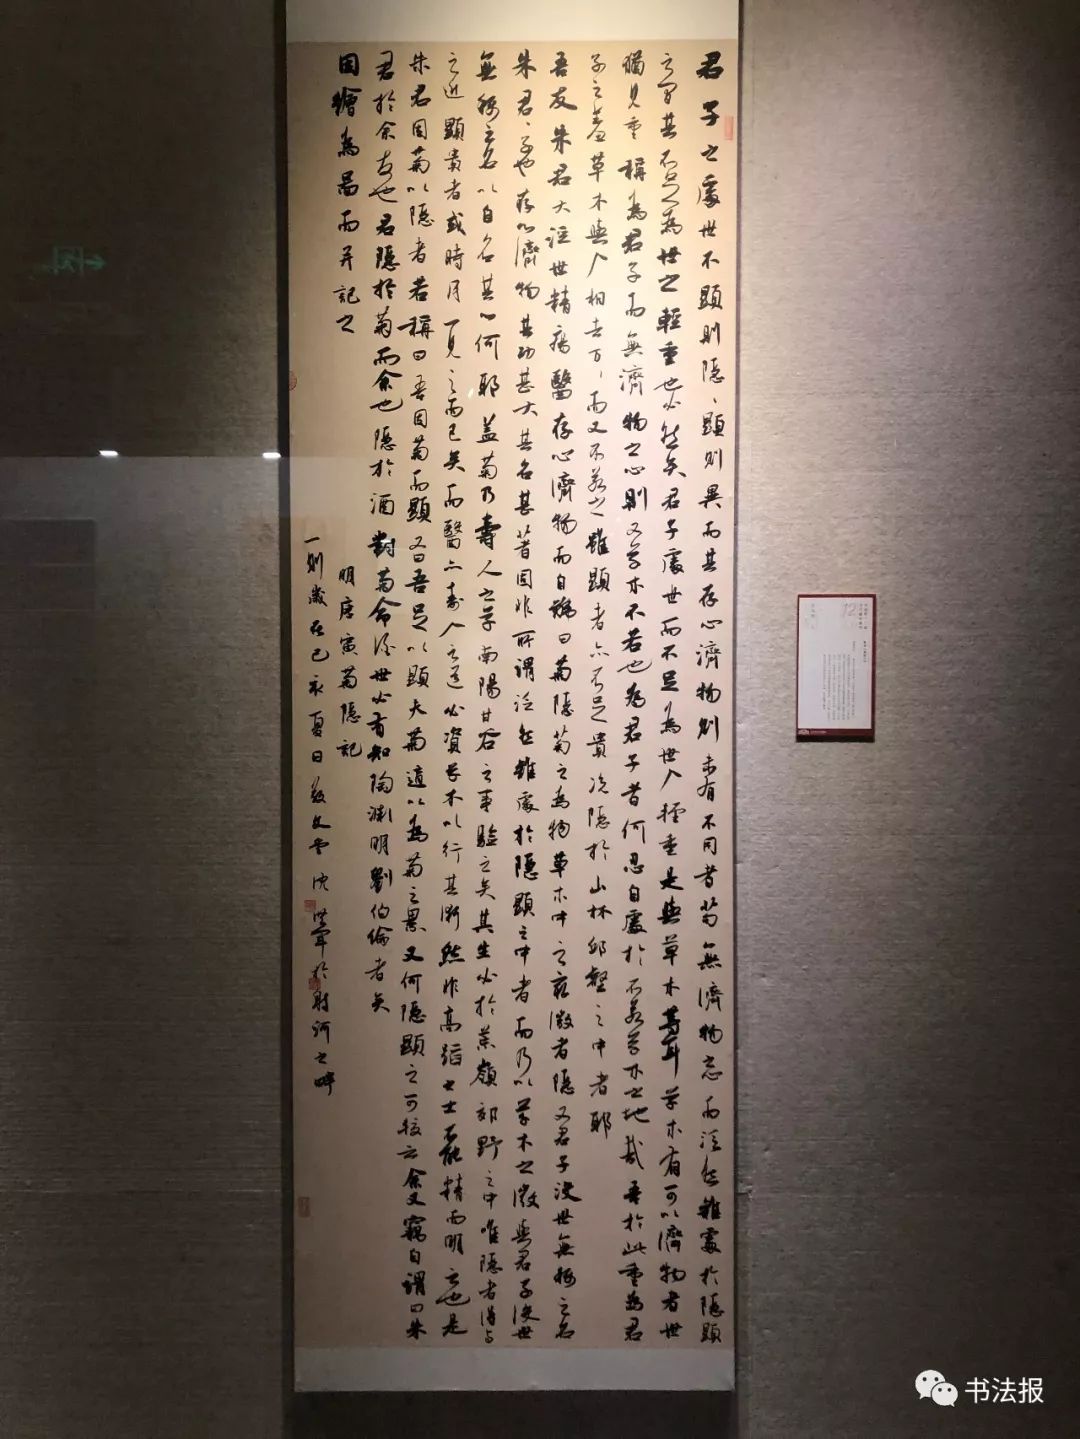 君子之處世不顯則隱、顯則異而其存心濟物則未有不同者苟無濟物之心而泛然雜處於隱顯
之間其不足為世之輕重也必然矣君子處世而不足為世人輕重是與草木等耳草木有可以濟物者世
猶見重稱為君子而無濟物之心則又草木不若也為君子者何忍自處於不若草木之地哉吾於此重為君
子之羞草木與人相去万、而又不若之雖顯者亦不足貴況隱於山林邱壑之中者耶
吾友朱君大涇世精瘍醫存心濟物而自號曰菊隱菊之為物草木中之最微者隱又君子沒世無稱之名
朱君、子也存心濟物其功甚大其名甚著固非所謂泛然雜處於隱顯之中者而乃以草木之微與君子沒世
無稱之名以自名其心何耶蓋菊乃壽人之草南陽甘谷之事驗之矣其生必於荒嶺郊野之中唯隱者得与
之近顯貴者或時月一見之而已矣而醫亦壽人之道必資草木以行其術然非高蹈之士不能精而明之也是
朱君因菊以隱者若稱曰吾因菊而顯又曰吾足以顯夫菊適以為菊之累又何隱顯之可較云余又竊自謂曰朱
君於余友也君隱於菊而余也隱於酒對菊命酒世必有知陶淵明劉伯倫者矣
因繪為圖而并記之
明唐寅菊隱記
一則歲在己亥夏日
12
书法报